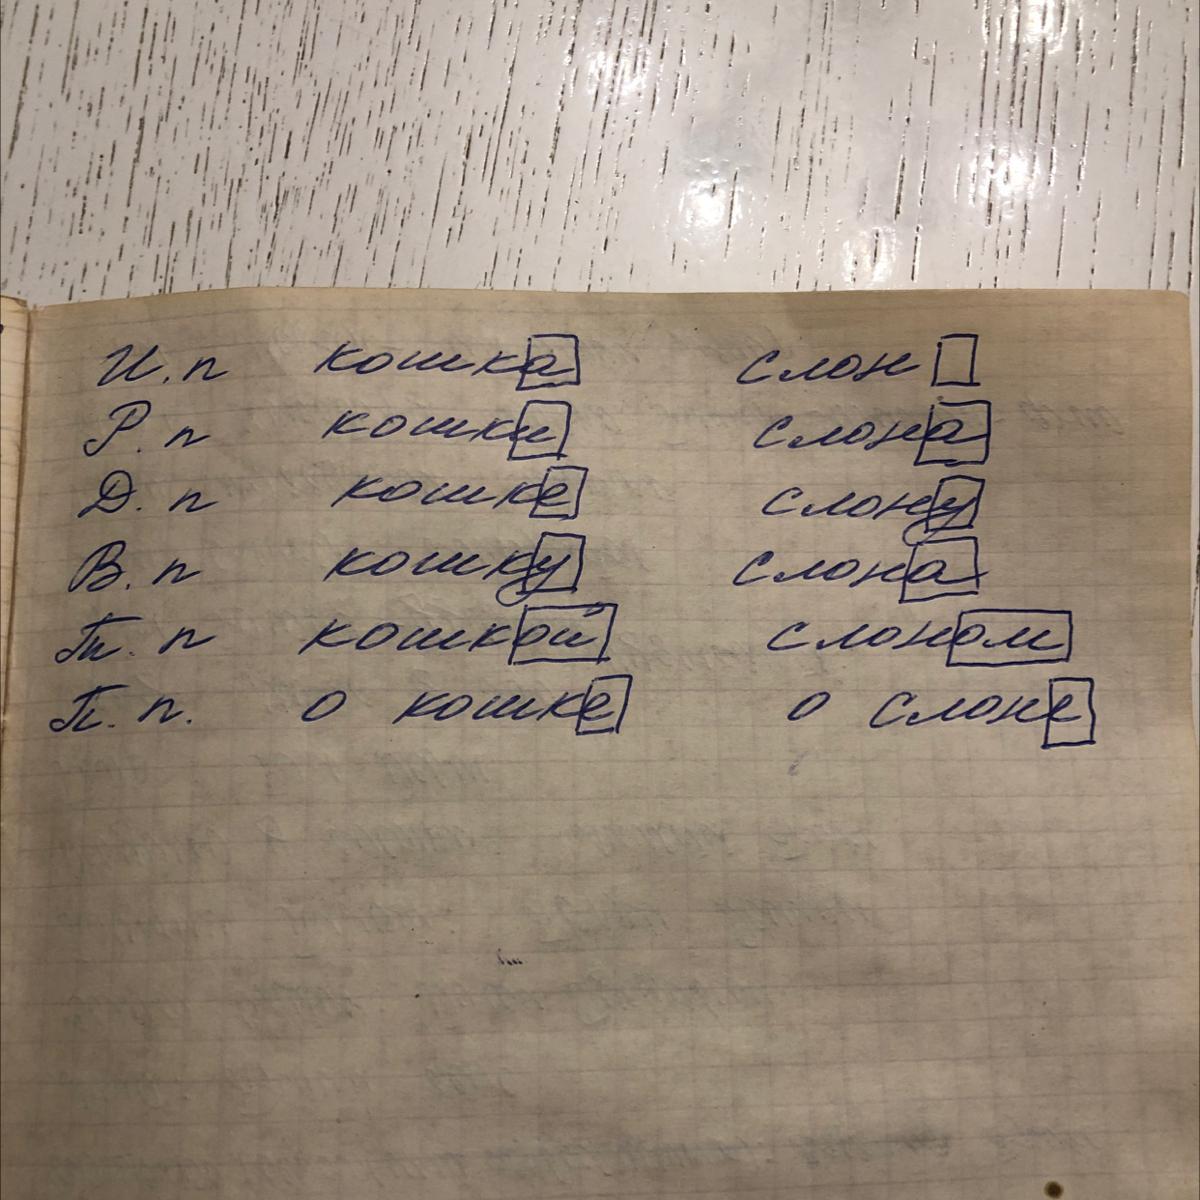 И.п кошка слон
Р.п кошки слона
Д.п кошке слону
В.п кошку слона
Т.п кошкой слоном
П.п. о кошке о слоне